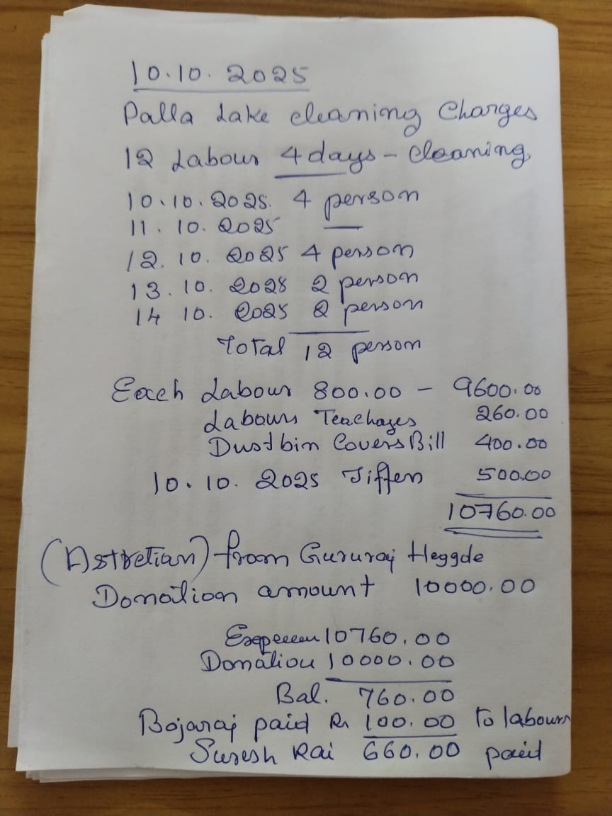 10.10.2025
Palla Lake cleaning Charges
12 Labour 4 days - cleaning
10.10.2025. 4 person
11.10.2025 —
12.10.2025 4 person
13.10.2025 2 person
14 10.2025 2 person
Total 12 person
Each Labour 800.00 - 9600.00
Labours 260.00
Dustbin Covers Bill 400.00
10.10.2025 Tiffen 500.00
10760.00
from Gururaj Heggde
Donation amount 10000.00
10760.00
Donation 10000.00
Bal. 760.00
Bojaraj paid Rs 100.00 to labours
Suresh Rai 660.00 paid